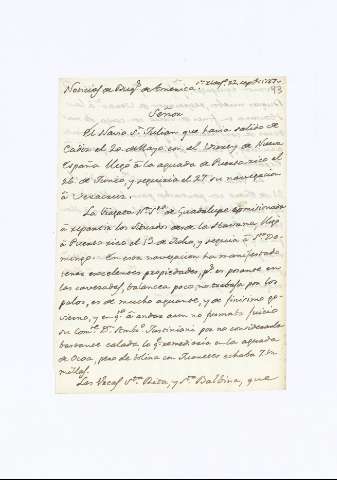 Noticias de Buq.s de America.
193
Señor
El Navio S.n Julian que havia salido de
Cadiz el 20 de Mayo con el Virrey de Nueva
España llegó à la aguada de Puerto rico el
26 de Junio, y seguiria el 27 su navegacion
à Veracruz.
La Fragata N.a S.ra de Guadalupe comisionada
à repartir los Situados desde la Havana, llegó
à Puerto rico el 13 de Julio, y seguia à S.to Do-
mingo. En esta navegacion ha manifestado
tener excelentes propiedades, p.s es posante en
las cavezadas, balancea poco, no trabaja por los
palos, es de mucho aguante, y de finisimo go-
vierno, y en q.to à andar aun no formaba juicio
su Com.te D.n por no considerarla
bastante calada lo q.e remediaria en la aguada
de Ocoa, pero de bolina con Juanetes echaba 7
millas.
Las Urcas S.ta Rita, y S.ta Balbina, que